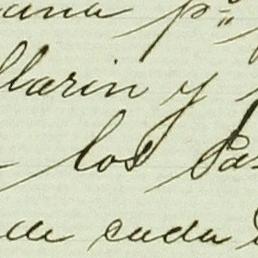 ana p.ª
llarin y
los Pa
de cada